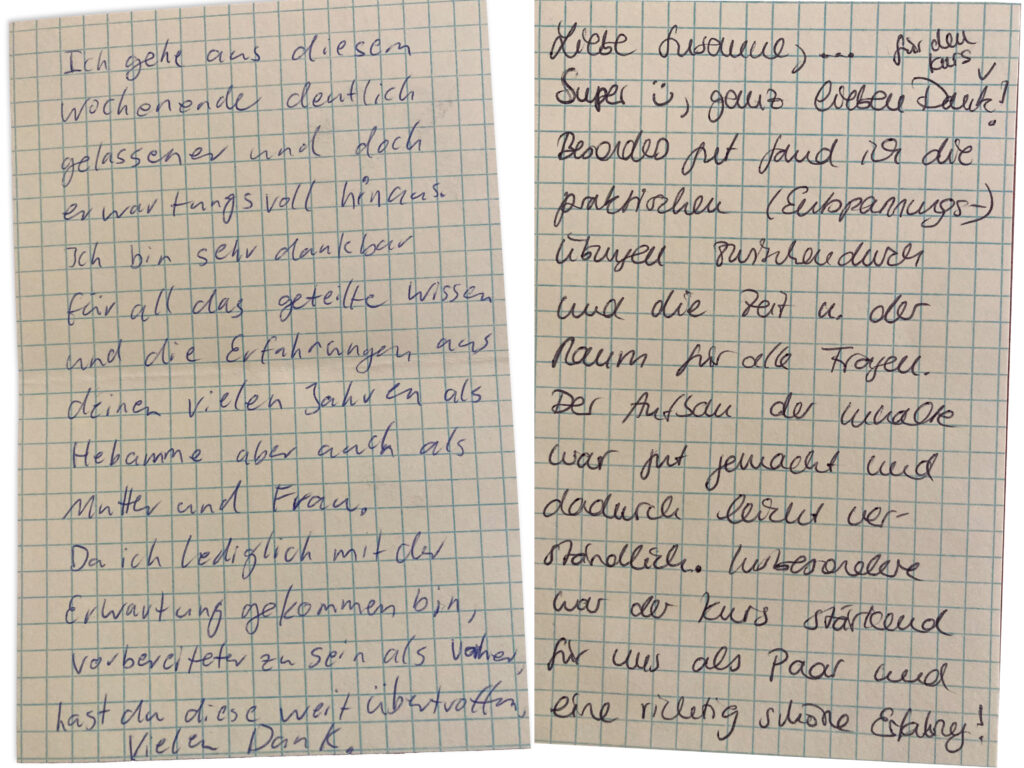 Ich gehe aus diesem
Wochenende deutlich
gelassener und doch
erwartungsvoll hinaus.
Ich bin sehr dankbar
für all das geteilte Wissen
und die Erfahrungen aus
deinen vielen Jahren als
Hebamme aber auch als
Mutter und Frau.
Da ich lediglich mit der
Erwartung gekommen bin,
vorbereiteter zu sein als vorher,
hast du diese weit übertroffen,
Vielen Dank.
Liebe Susanne, ...
für den
Kurs
Super ☺, ganz lieben Dank!
Besonders gut fand ich die
praktischen (Entspannungs-)
Übungen zwischendurch
und die Zeit u. der
Raum für alle Fragen.
Der Aufbau der Inhalte
war gut gemacht und
dadurch leicht ver-
ständlich. Insbesondere
war der Kurs stärkend
für uns als Paar und
eine richtig schöne Erfahrung!